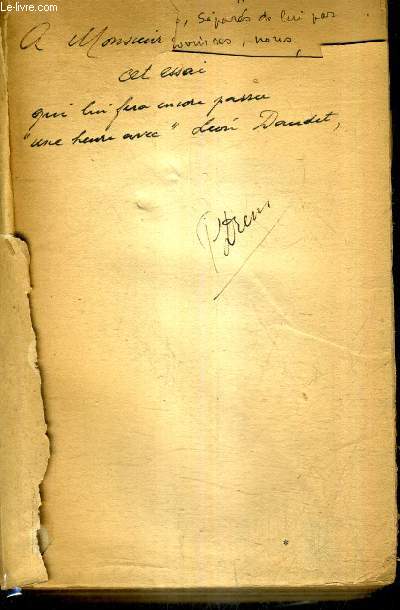 Le-livre.com
, Séparés de lui par
A Monsieur nous,
cet essai
qui lui fera encore passer
"une heure avec" Léon Daudet,
*